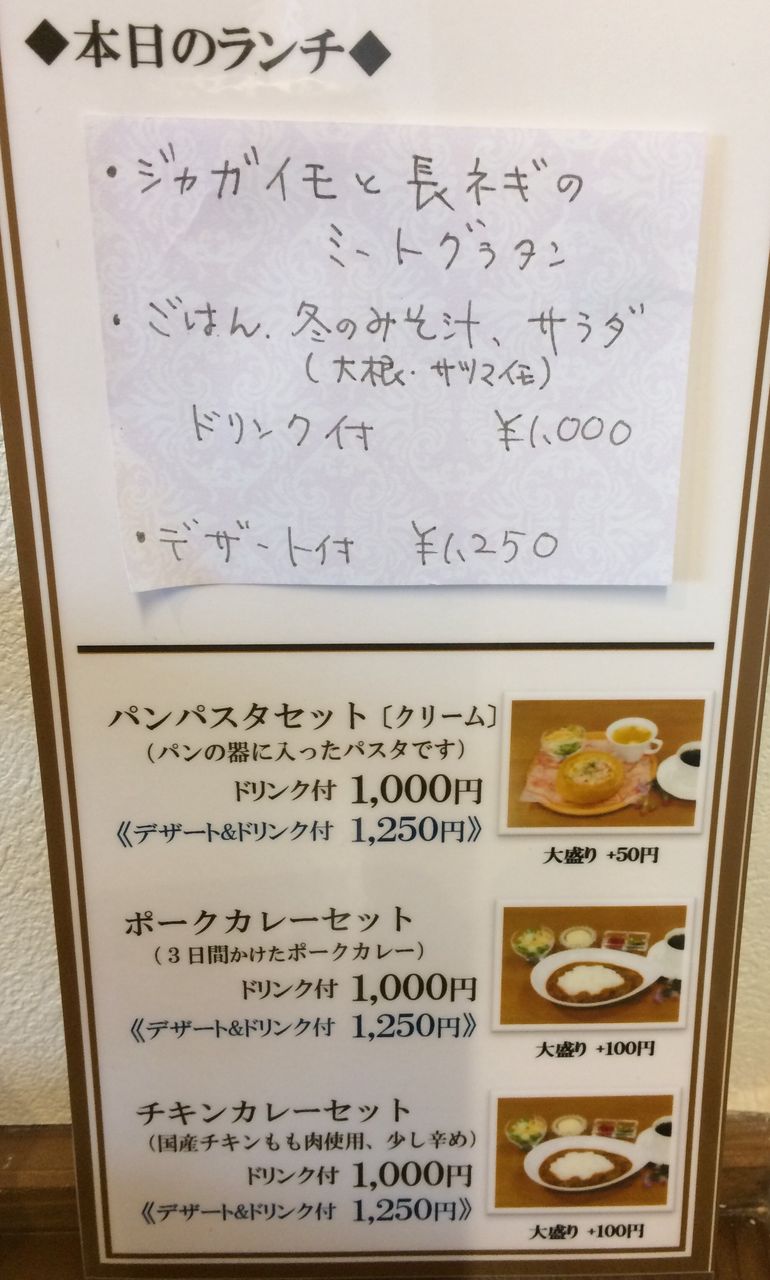 ◆本日のランチ◆
・ジャガイモと長ネギの
ミートグラタン
・ごはん、冬のみそ汁、サラダ
(大根・サツマイモ)
ドリンク付 ¥1,000
・デザート付 ¥1,250
パンパスタセット〔クリーム〕
(パンの器に入ったパスタです)
ドリンク付 1,000円
《デザート&ドリンク付 1,250円》
大盛り +50円
ポークカレーセット
(3日間かけたポークカレー)
ドリンク付 1,000円
《デザート&ドリンク付 1,250円》
大盛り +100円
チキンカレーセット
(国産チキンもも肉使用、少し辛め)
ドリンク付 1,000円
《デザート&ドリンク付 1,250円》
大盛り +100円